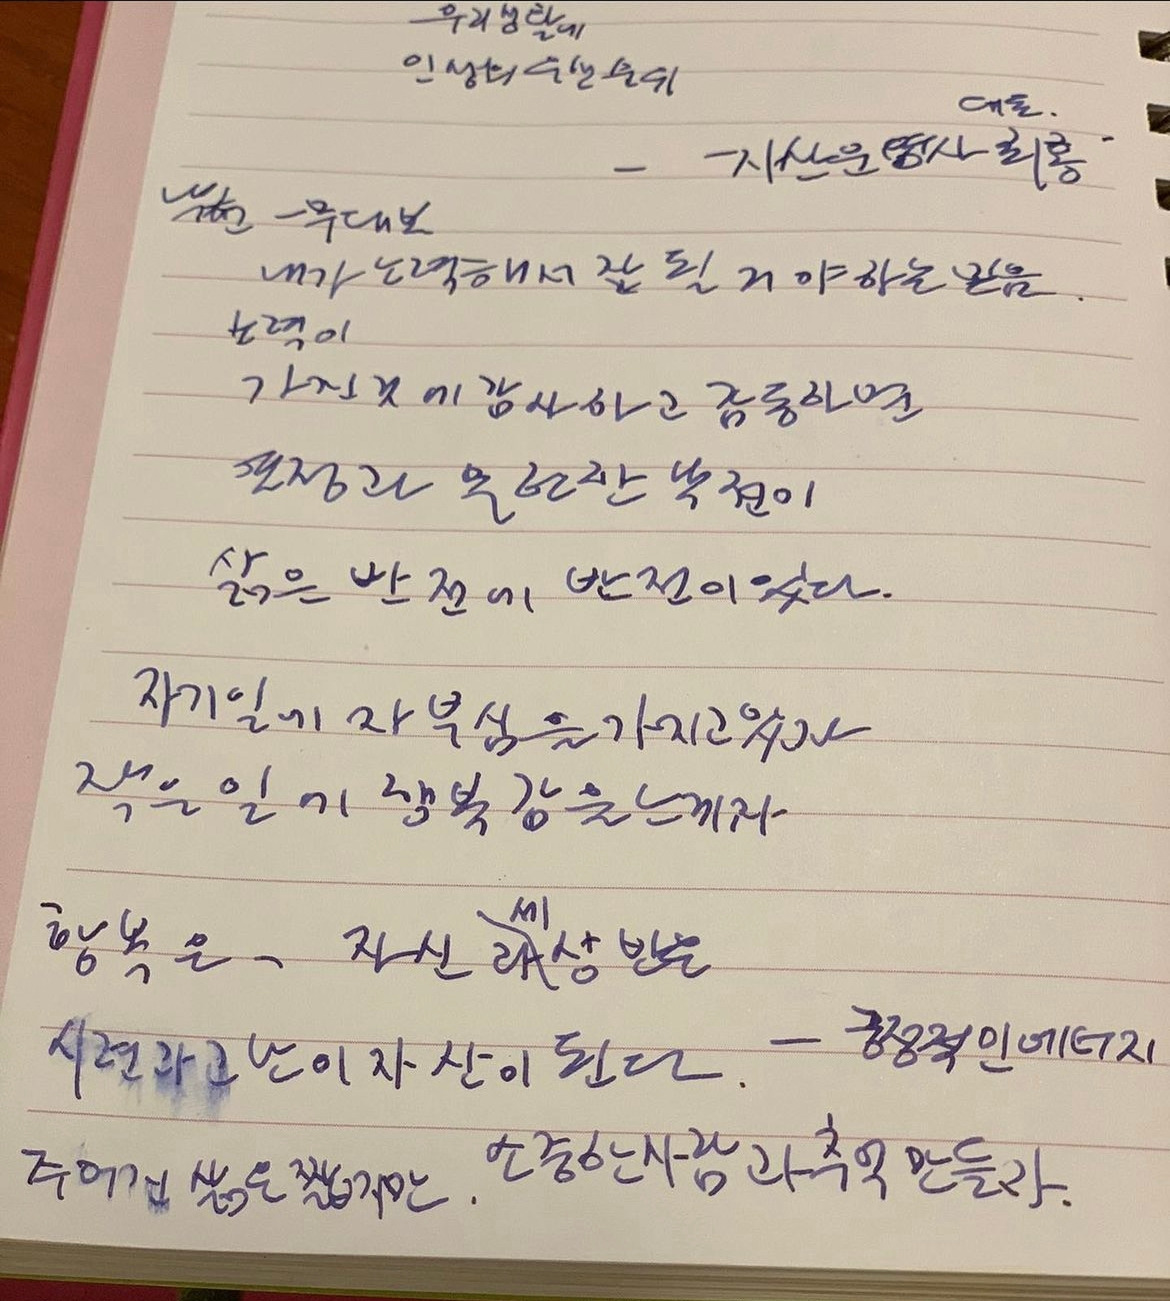 우리생활에
인생의 우선순위
대표.
- 지산운명사 최홍
낙천 - 무대보
내가 노력해서 잘 될 거야하는 믿음.
노력이
가진것에감사하고 감동하면
긍정과 올려간 낙천이
삶은 반전에 반전이있다.
자기일에 자부심을가지고있자
작은일에 행복감을느끼자
행복은、 자신 세상만큼
시련과고난이자산이된다. - 긍정적인에너지
주어진 삶은짧지만. 소중한사람과추억만들라.